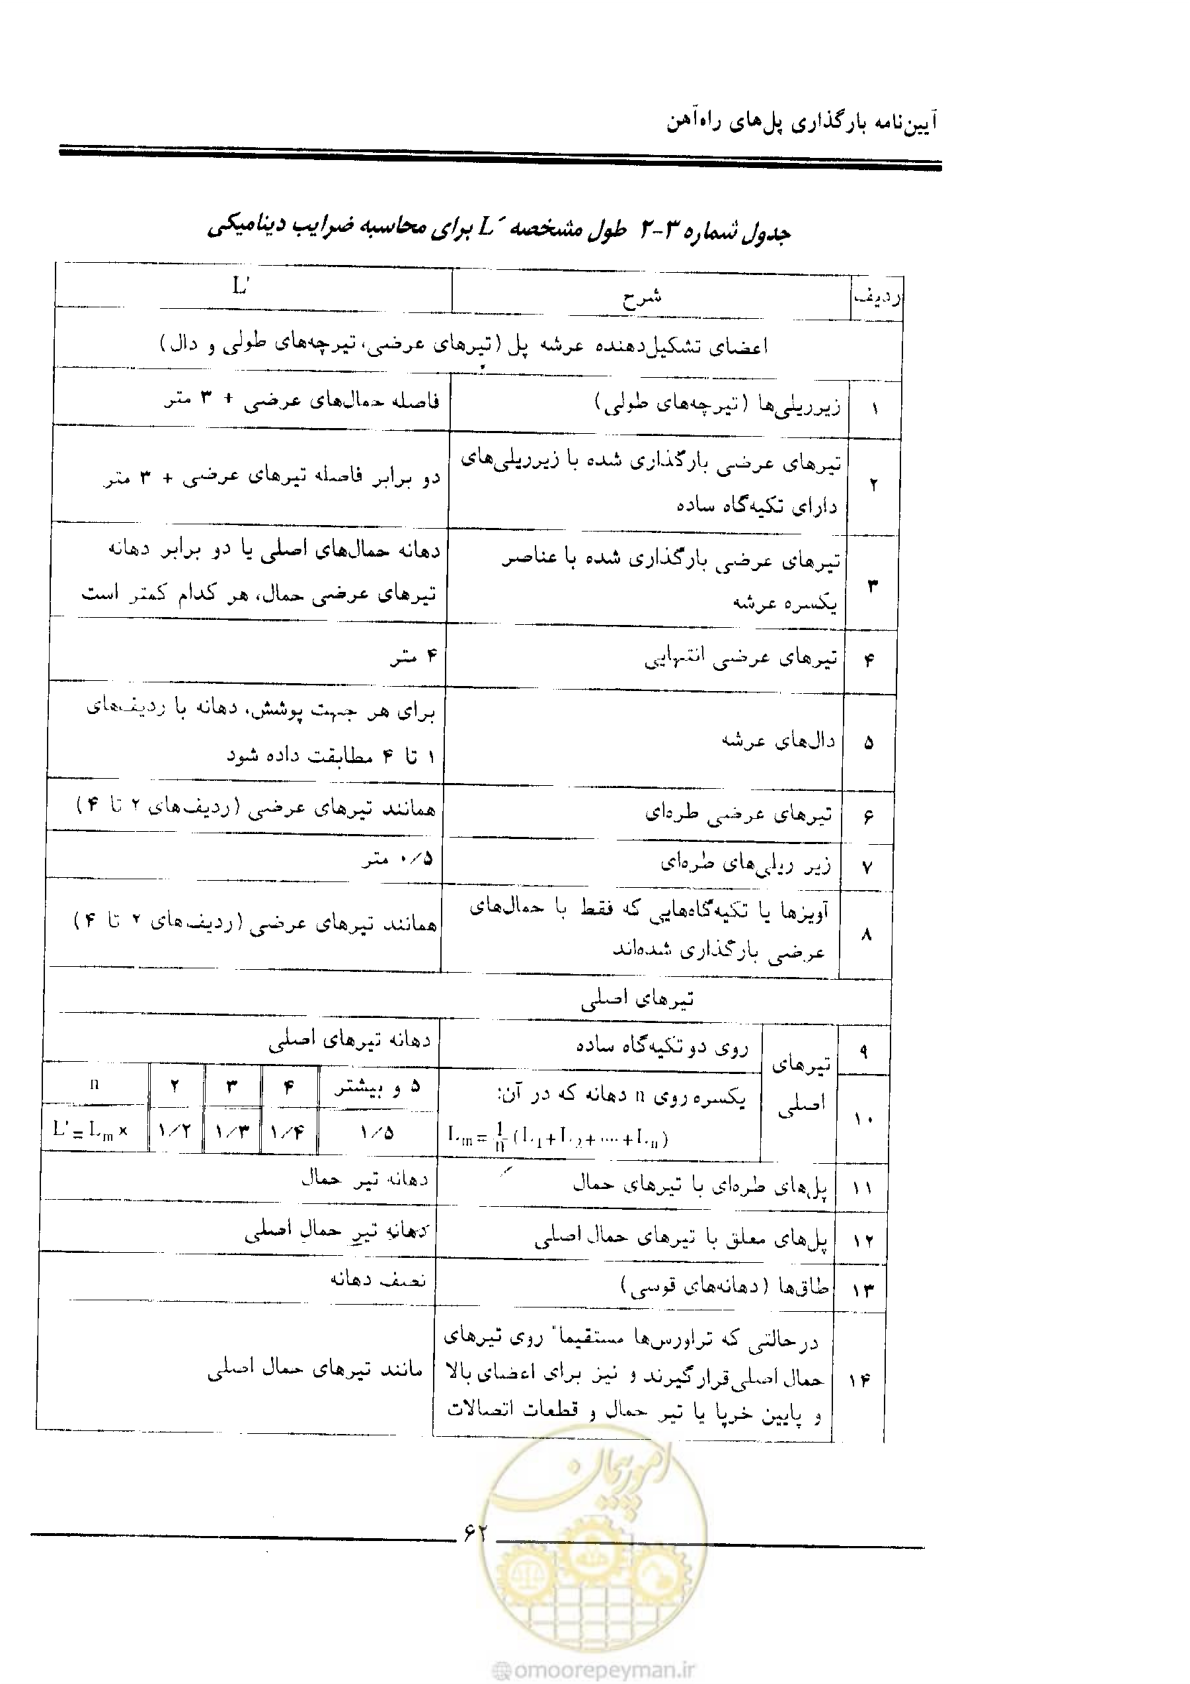 آیین‌نامه بارگذاری پل‌های راه‌آهن
جدول شماره ۳-۲ طول مشخصه L´ برای محاسبه ضرایب دینامیکی
ردیف شرح L'
اعضای تشکیل‌دهنده عرشه پل (تیرهای عرضی، تیرچه‌های طولی و دال)
۱ زیرریلی‌ها (تیرچه‌های طولی) فاصله حمال‌های عرضی + ۳ متر
۲ تیرهای عرضی بارگذاری شده با زیرریلی‌های
دارای تکیه‌گاه ساده
دو برابر فاصله تیرهای عرضی + ۳ متر
۳ تیرهای عرضی بارگذاری شده با عناصر
یکسره عرشه
دهانه حمال‌های اصلی یا دو برابر دهانه
تیرهای عرضی حمال، هر کدام کمتر است
۴ تیرهای عرضی انتهایی ۴ متر
۵ دال‌های عرشه
برای هر جهت پوشش، دهانه با ردیف‌های
۱ تا ۴ مطابقت داده شود
۶ تیرهای عرضی طره‌ای همانند تیرهای عرضی (ردیف‌های ۲ تا ۴)
۷ زیر ریلی‌های طره‌ای ۰/۵ متر
۸ آویزها یا تکیه‌گاه‌هایی که فقط با حمال‌های
عرضی بارگذاری شده‌اند
همانند تیرهای عرضی (ردیف‌های ۲ تا ۴)
تیرهای اصلی
تیرهای
اصلی
۹ روی دو تکیه‌گاه ساده دهانه تیرهای اصلی
۱۰ یکسره روی n دهانه که در آن:
Lm = 1/n (L1+L2+....+Ln)
n ۲ ۳ ۴ ۵ و بیشتر
L' = Lm × ۱/۲ ۱/۳ ۱/۴ ۱/۵
۱۱ پل‌های طره‌ای با تیرهای حمال دهانه تیر حمال
۱۲ پل‌های معلق با تیرهای حمال اصلی دهانه تیر حمال اصلی
۱۳ طاق‌ها (دهانه‌های قوسی) نصف دهانه
۱۴ درحالتی که تراورس‌ها مستقیماً روی تیرهای
حمال اصلی قرار گیرند و نیز برای اعضای بالا
و پایین خرپا یا تیر حمال و قطعات اتصالات
مانند تیرهای حمال اصلی
۶۲
امور پیمان
@omoorepeyman.ir